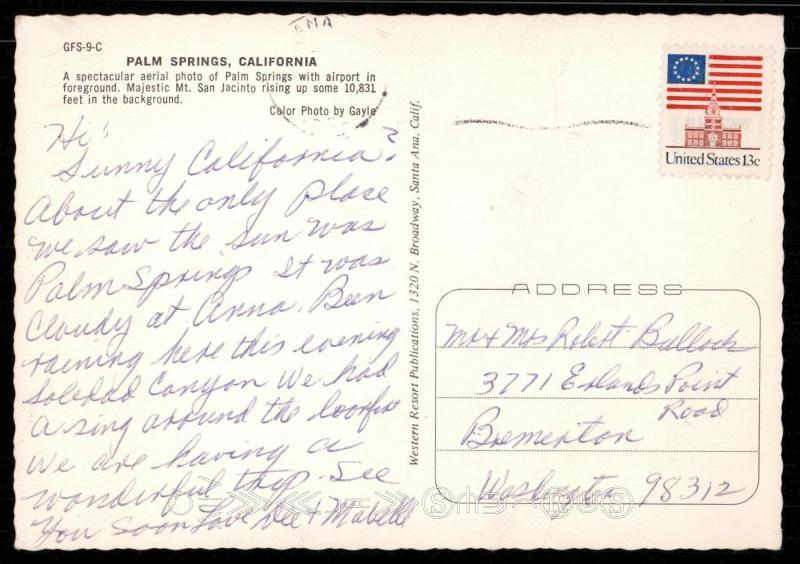 ANA
GFS-9-C
PALM SPRINGS, CALIFORNIA
A spectacular aerial photo of Palm Springs with airport in
foreground. Majestic Mt. San Jacinto rising up some 10,831
feet in the background.
Color Photo by Gayle
Hi!
Sunny California?
About the only place
we saw the sun was
Palm Springs It was
Cloudy at Anna. Been
raining here this evening
Soledad Canyon We had
a sing around the
We are having a
wonderful trip. See
You Soon Love Dee + Mabelle
Western Resort Publications, 1320 N. Broadway, Santa Ana, Calif.
United States 13c
ADDRESS
Mr + Mrs Robert Bullock
3771 Erlands Point
Road
Bremerton
Washington 98312